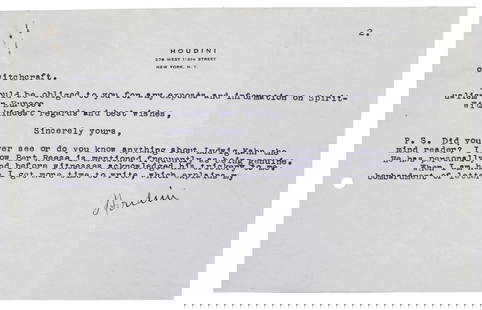 2.
HOUDINI
278 WEST 113TH STREET
NEW YORK, N. Y.
itchcraft.
ould be obliged to you for any exposes and information on Spirit-
Europe.
kindest regards and best wishes,
Sincerely yours,
P. S. Did you
ver see or do you know anything about Ludwig Kahn the
mind reader? I
ow Bert Reese is mentioned frequently as being genuine.
He has personally
before witnesses acknowledged his trickery to me.
When I am h
I get more time to write, which explains my
bombardment of
Houdini